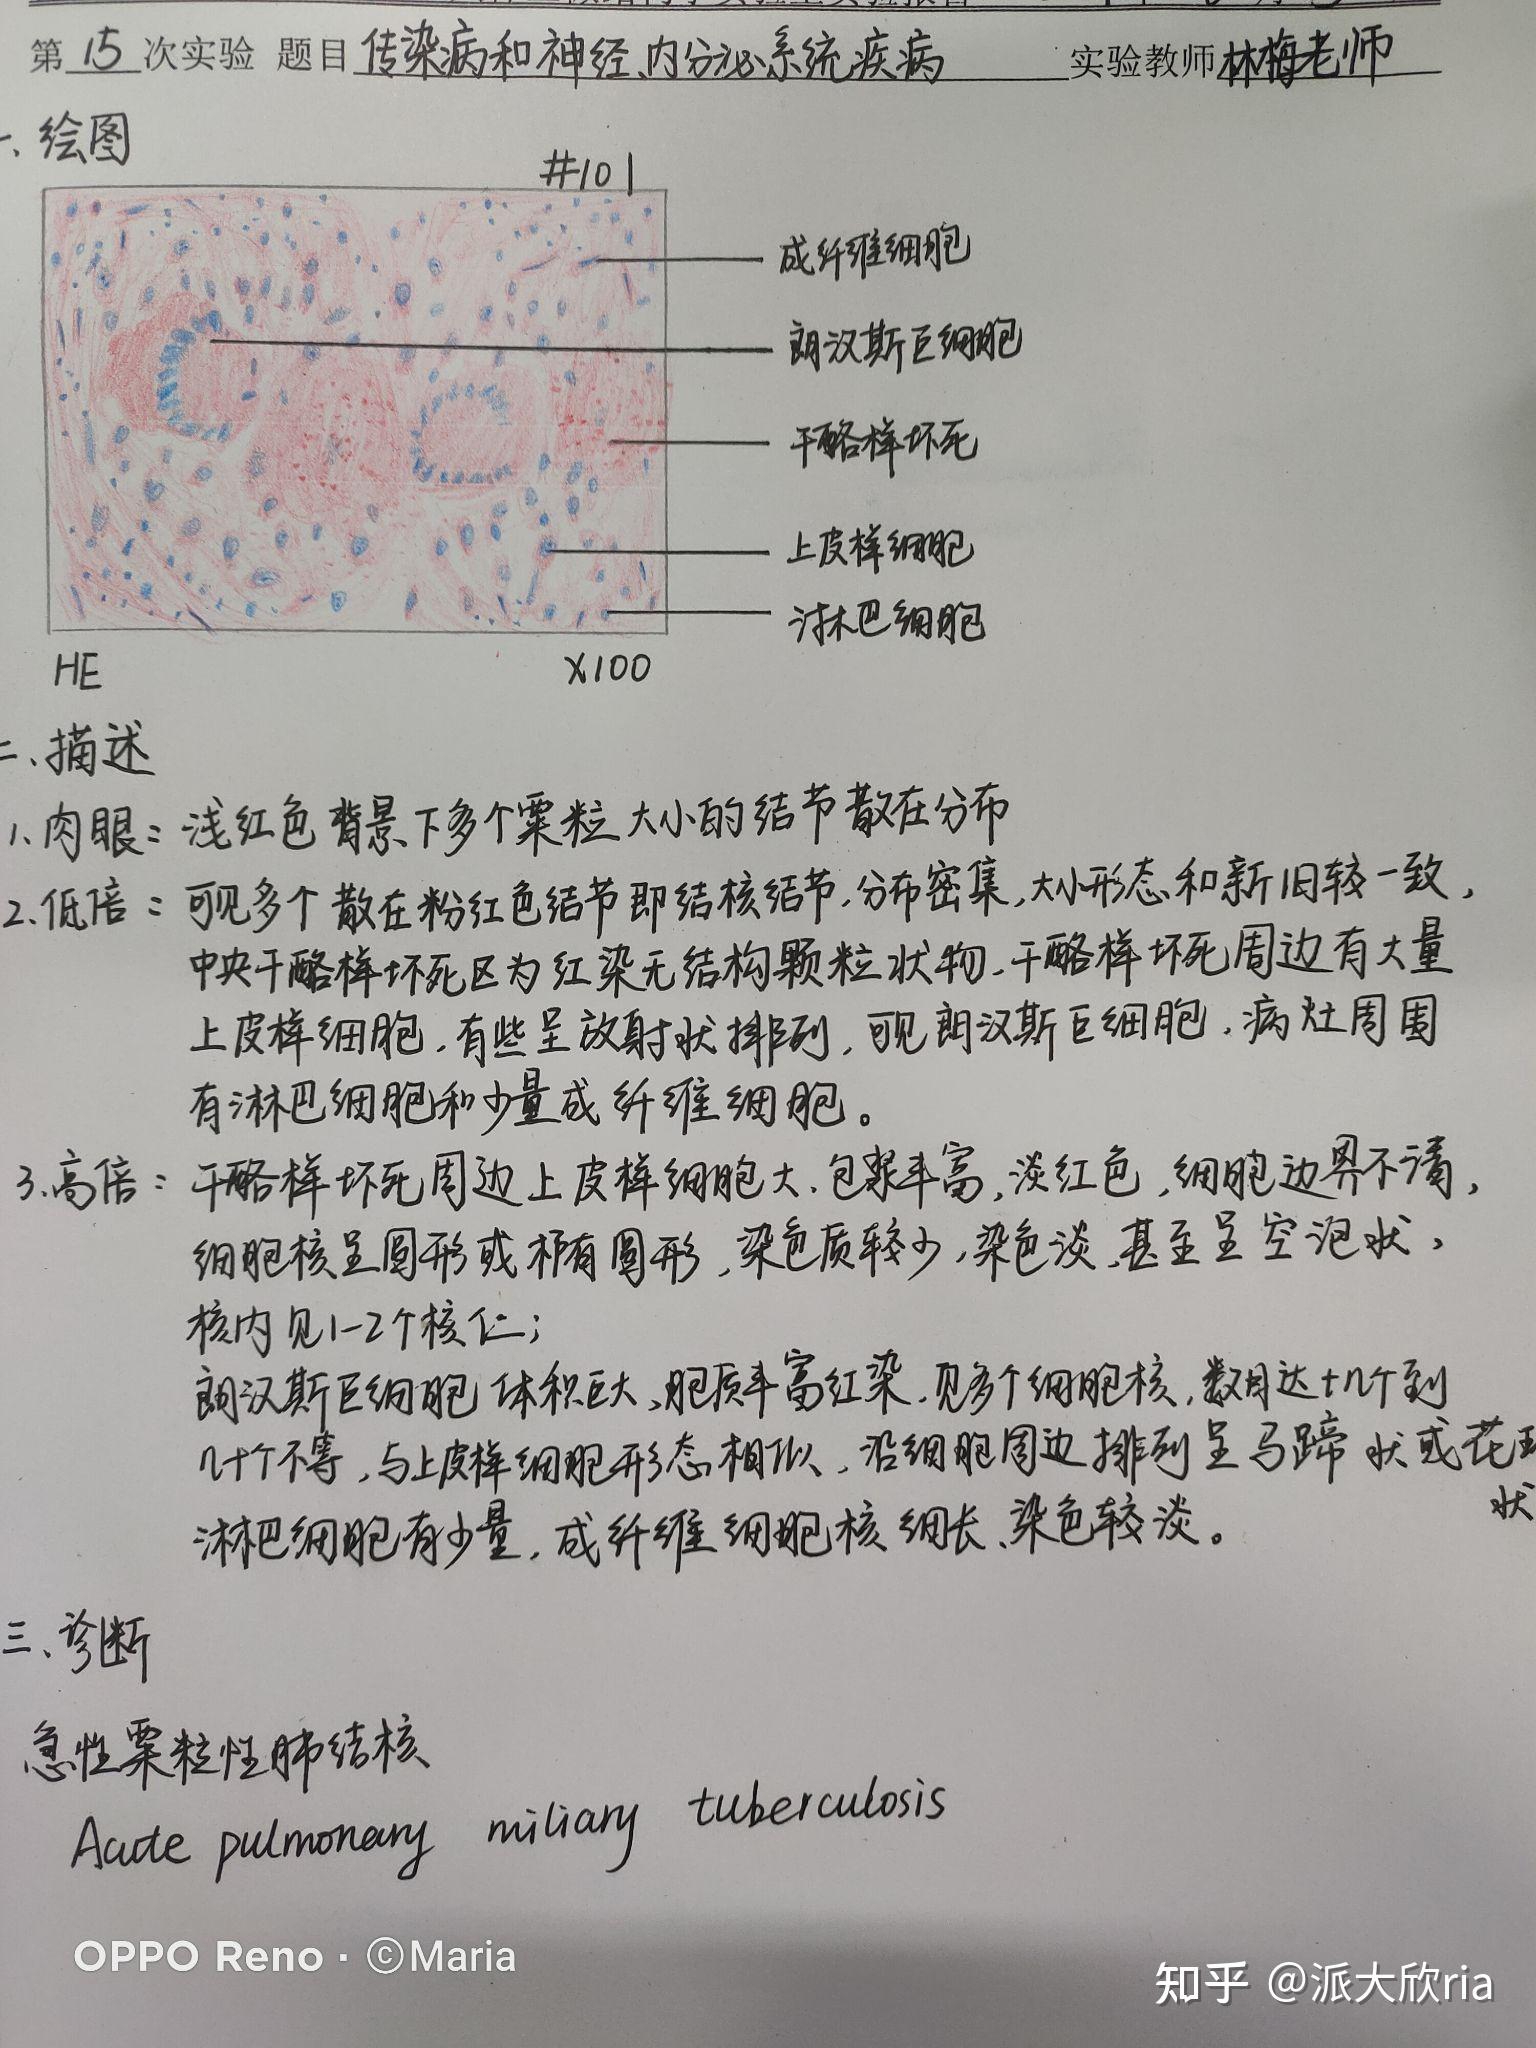 第 15 次实验 题目 传染病和神经、内分泌系统疾病 实验教师 林梅老师
一、绘图
#101
成纤维细胞
朗汉斯巨细胞
干酪样坏死
上皮样细胞
淋巴细胞
HE ×100
二、描述
1、肉眼：浅红色背景下多个粟粒大小的结节散在分布
2、低倍：可见多个散在粉红色结节即结核结节，分布密集，大小形态和新旧较一致，
中央干酪样坏死区为红染无结构颗粒状物、干酪样坏死周边有大量
上皮样细胞，有些呈放射状排列，可见朗汉斯巨细胞，病灶周围
有淋巴细胞和少量成纤维细胞。
3、高倍：干酪样坏死周边上皮样细胞大、包浆丰富，淡红色，细胞边界不清，
细胞核呈圆形或椭圆形，染色质较少，染色淡，甚至呈空泡状，
核内见1-2个核仁；
朗汉斯巨细胞体积巨大、胞质丰富红染、见多个细胞核，数目达十几个到
几十个不等，与上皮样细胞形态相似，沿细胞周边排列呈马蹄状或花环
状
淋巴细胞有少量，成纤维细胞核细长、染色较淡。
三、诊断
急性粟粒性肺结核
Acute pulmonary miliary tuberculosis
OPPO Reno · ©Maria
知乎 @派大欣ria